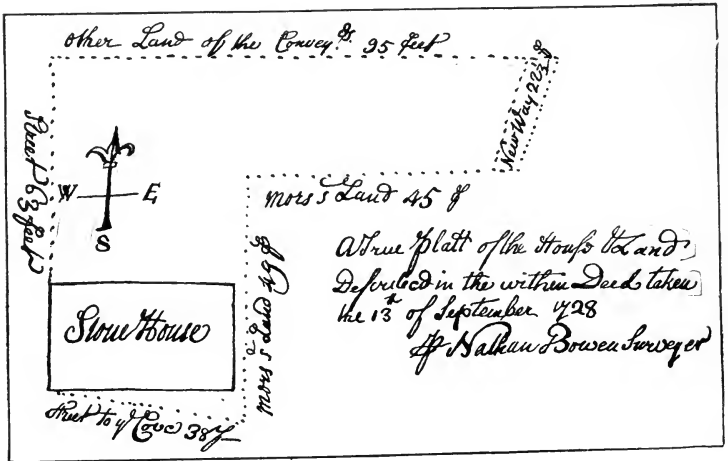 other Land of the Convey.rs 95 feet
New Way 22½ f
Street 63 feet
W E
S
mors's Land 45 f
mors's Land 49 f
Stone House
Street to ye Cove 38 f
A True Platt of the House & Land
Described in the within Deed taken
the 13th of September 1728
Nathan Bowen Surveyer